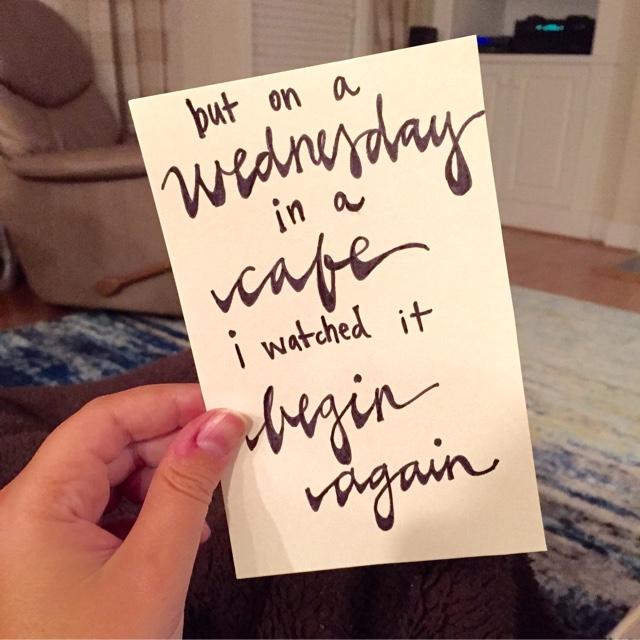 but on a
wednesday
in a
cafe
i watched it
begin
again